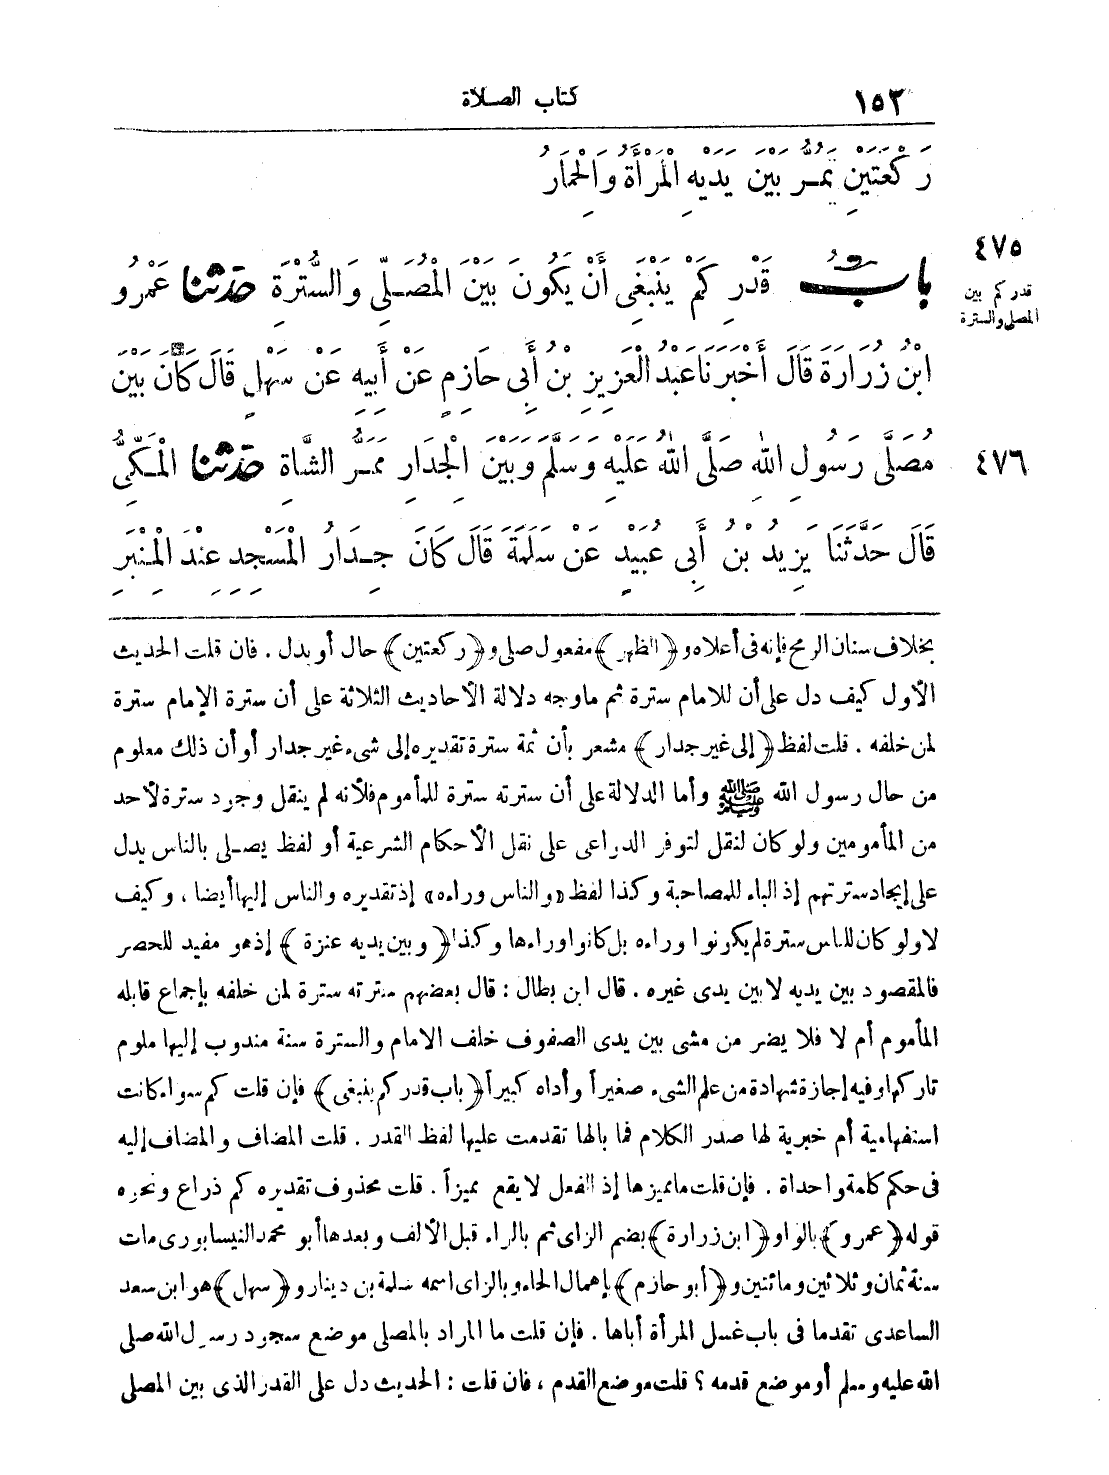 ١٥٢ كتاب الصلاة
رَكْعَتَيْنِ تَمُرُّ بَيْنَ يَدَيْهِ الْمَرْأَةُ وَالْحِمَارُ
٤٧٥
قدر كم بين
المصلى والسترة
بابُ قَدْرِ كَمْ يَنْبَغِى أَنْ يَكُونَ بَيْنَ الْمُصَلِّى وَالسُّتْرَةِ حَدَّثَنا عَمْرُو
ابْنُ زُرَارَةَ قَالَ أَخْبَرَنَا عَبْدُ الْعَزِيزِ بْنُ أَبِى حَازِمٍ عَنْ أَبِيهِ عَنْ سَهْلٍ قَالَ كَانَ بَيْنَ
مُصَلَّى رَسُولِ اللهِ صَلَّى اللهُ عَلَيْهِ وَسَلَّمَ وَبَيْنَ الْجِدَارِ مَمَرُّ الشَّاةِ حَدَّثَنا الْمَكِّىُّ
٤٧٦
قَالَ حَدَّثَنَا يَزِيدُ بْنُ أَبِى عُبَيْدٍ عَنْ سَلَمَةَ قَالَ كَانَ جِدَارُ الْمَسْجِدِ عِنْدَ الْمِنْبَرِ
بخلاف سنان الرمح فإنه فى أعلاه و﴿الظهر﴾ مفعول صلى و﴿ركعتين﴾ حال أو بدل . فان قلت الحديث
الأول كيف دل على أن للامام سترة ثم ماوجه دلالة الأحاديث الثلاثة على أن سترة الإمام سترة
لمن خلفه . قلت لفظ ﴿إلى غير جدار﴾ مشعر بأن ثمة سترة تقديره إلى شىء غير جدار أو أن ذلك معلوم
من حال رسول الله ﷺ وأما الدلالة على أن سترته سترة للمأموم فلأنه لم ينقل وجود سترة لأحد
من المأمومين ولو كان لنقل لتوفر الدواعى على نقل الأحكام الشرعية أو لفظ يصلى بالناس يدل
على إيجاد سترتهم إذ الباء للمصاحبة وكذا لفظ «والناس وراءه» إذ تقديره والناس إليها أيضا ، وكيف
لا ولو كان للناس سترة لم يكونوا وراءه بل كانوا وراءها وكذا ﴿وبين يديه عنزة﴾ إذ هو مفيد للحصر
فالمقصود بين يديه لا بين يدى غيره . قال ابن بطال : قال بعضهم سترته سترة لمن خلفه بإجماع قابله
المأموم أم لا فلا يضر من مشى بين يدى الصفوف خلف الامام والسترة سنة مندوب إليها ملوم
تاركها وفيه إجازة شهادة من علم الشىء صغيراً وأداه كبيراً ﴿باب قدر كم ينبغى﴾ فإن قلت كم سواء كانت
استفهامية أم خبرية لها صدر الكلام فما بالها تقدمت عليها لفظ القدر . قلت المضاف والمضاف إليه
فى حكم كلمة واحداة . فإن قلت ما مميزها إذ الفعل لا يقع مميزاً . قلت محذوف تقديره كم ذراع ونحوه
قوله ﴿عمرو﴾ بالواو ﴿ابن زرارة﴾ بضم الزاى ثم بالراء قبل الألف وبعدها أبو محمد النيسابورى مات
سنة ثمان وثلاثين ومائتين و﴿أبو حازم﴾ بإهمال الحاء وبالزاى اسمه سلمة بن دينار و﴿سهل﴾ هو ابن سعد
الساعدى تقدما فى باب غسل المرأة أباها . فإن قلت ما المراد بالمصلى موضع سجود رسول الله صلى
الله عليه وسلم أو موضع قدمه ؟ قلت موضع القدم ، فان قلت : الحديث دل على القدر الذى بين المصلى